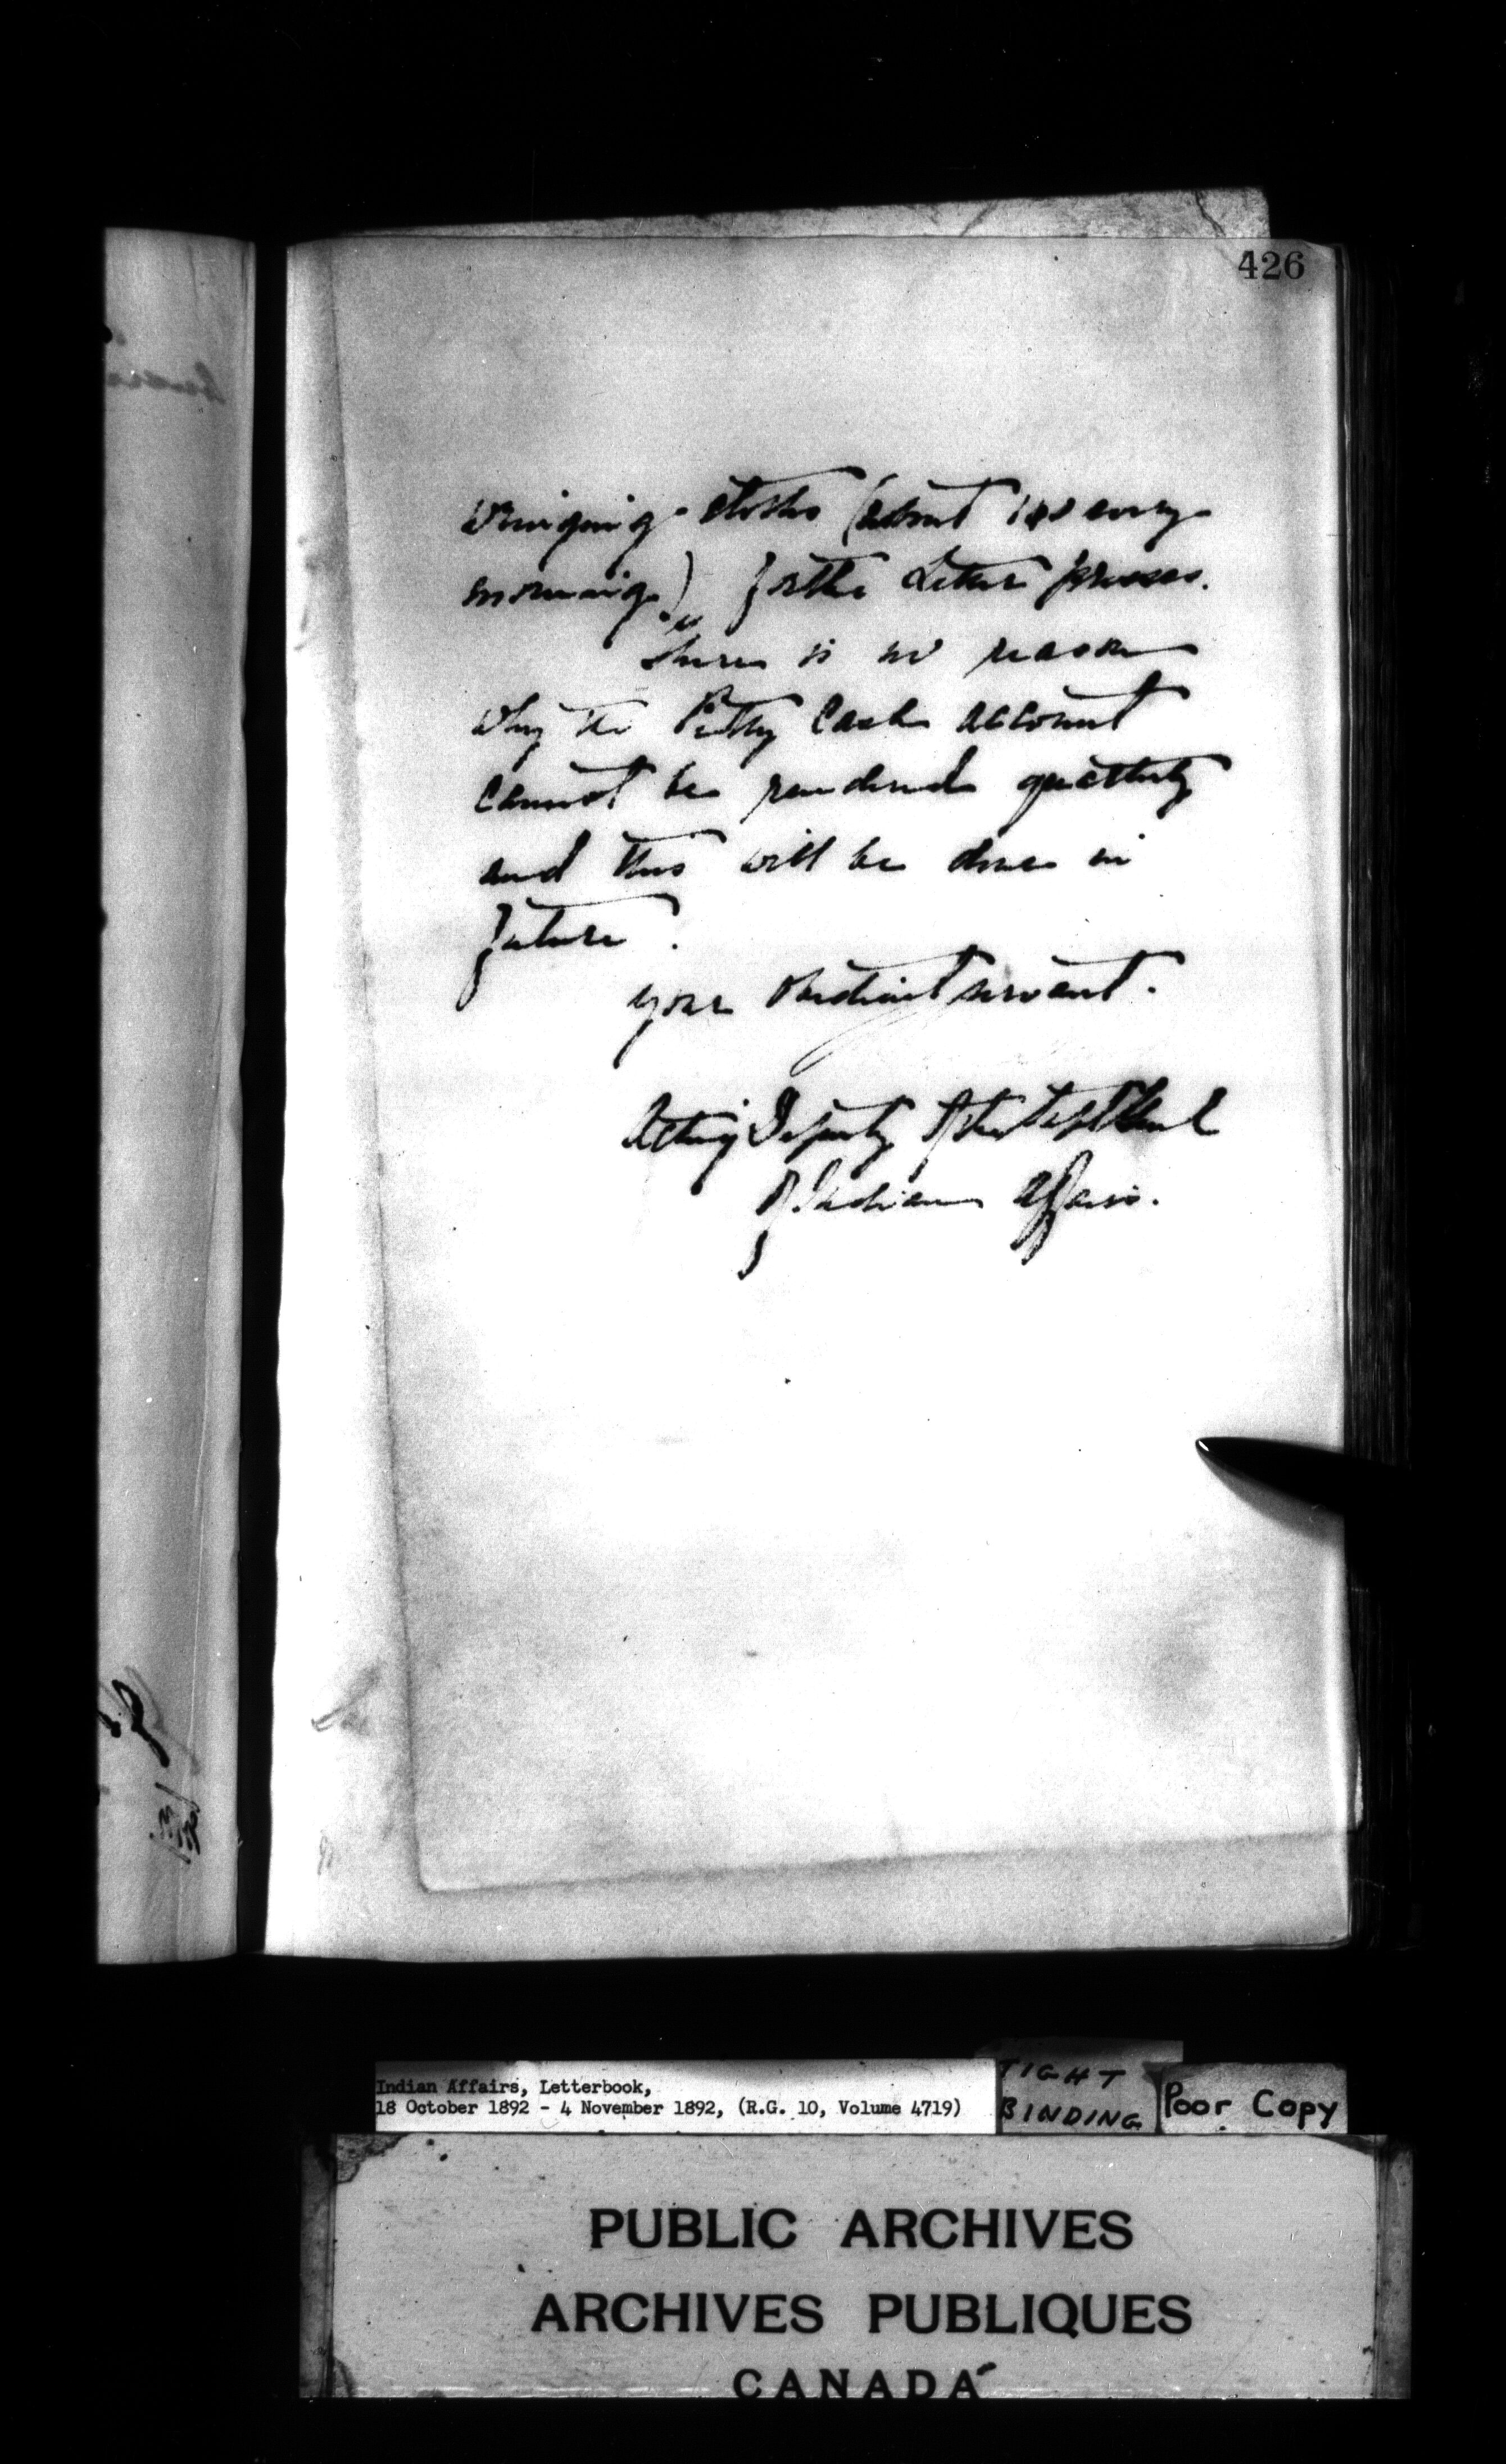 426
wringing cloths (about 100 every
morning) for the Letter presses.
There is no reason
why the Petty Cash account
cannot be rendered quarterly
and this will be done in
future.
Your obedient servant.
Acting Deputy of the Supt Genl
of Indian Affairs.
Indian Affairs, Letterbook,
18 October 1892 - 4 November 1892, (R.G. 10, Volume 4719)
TIGHT
BINDING
Poor Copy
PUBLIC ARCHIVES
ARCHIVES PUBLIQUES
CANADA